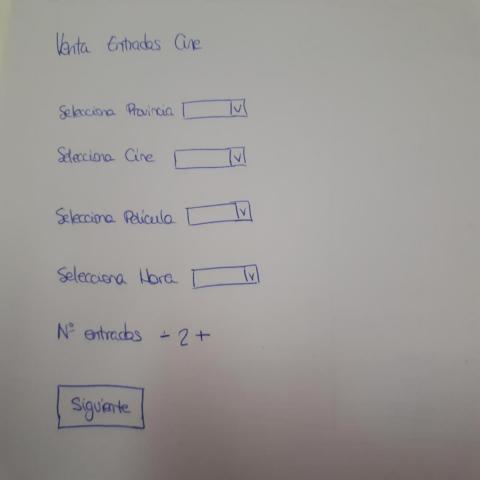 Venta Entradas Cine
Selecciona Provincia v
Selecciona Cine v
Selecciona Película v
Selecciona Hora v
Nº entradas - 2 +
Siguiente